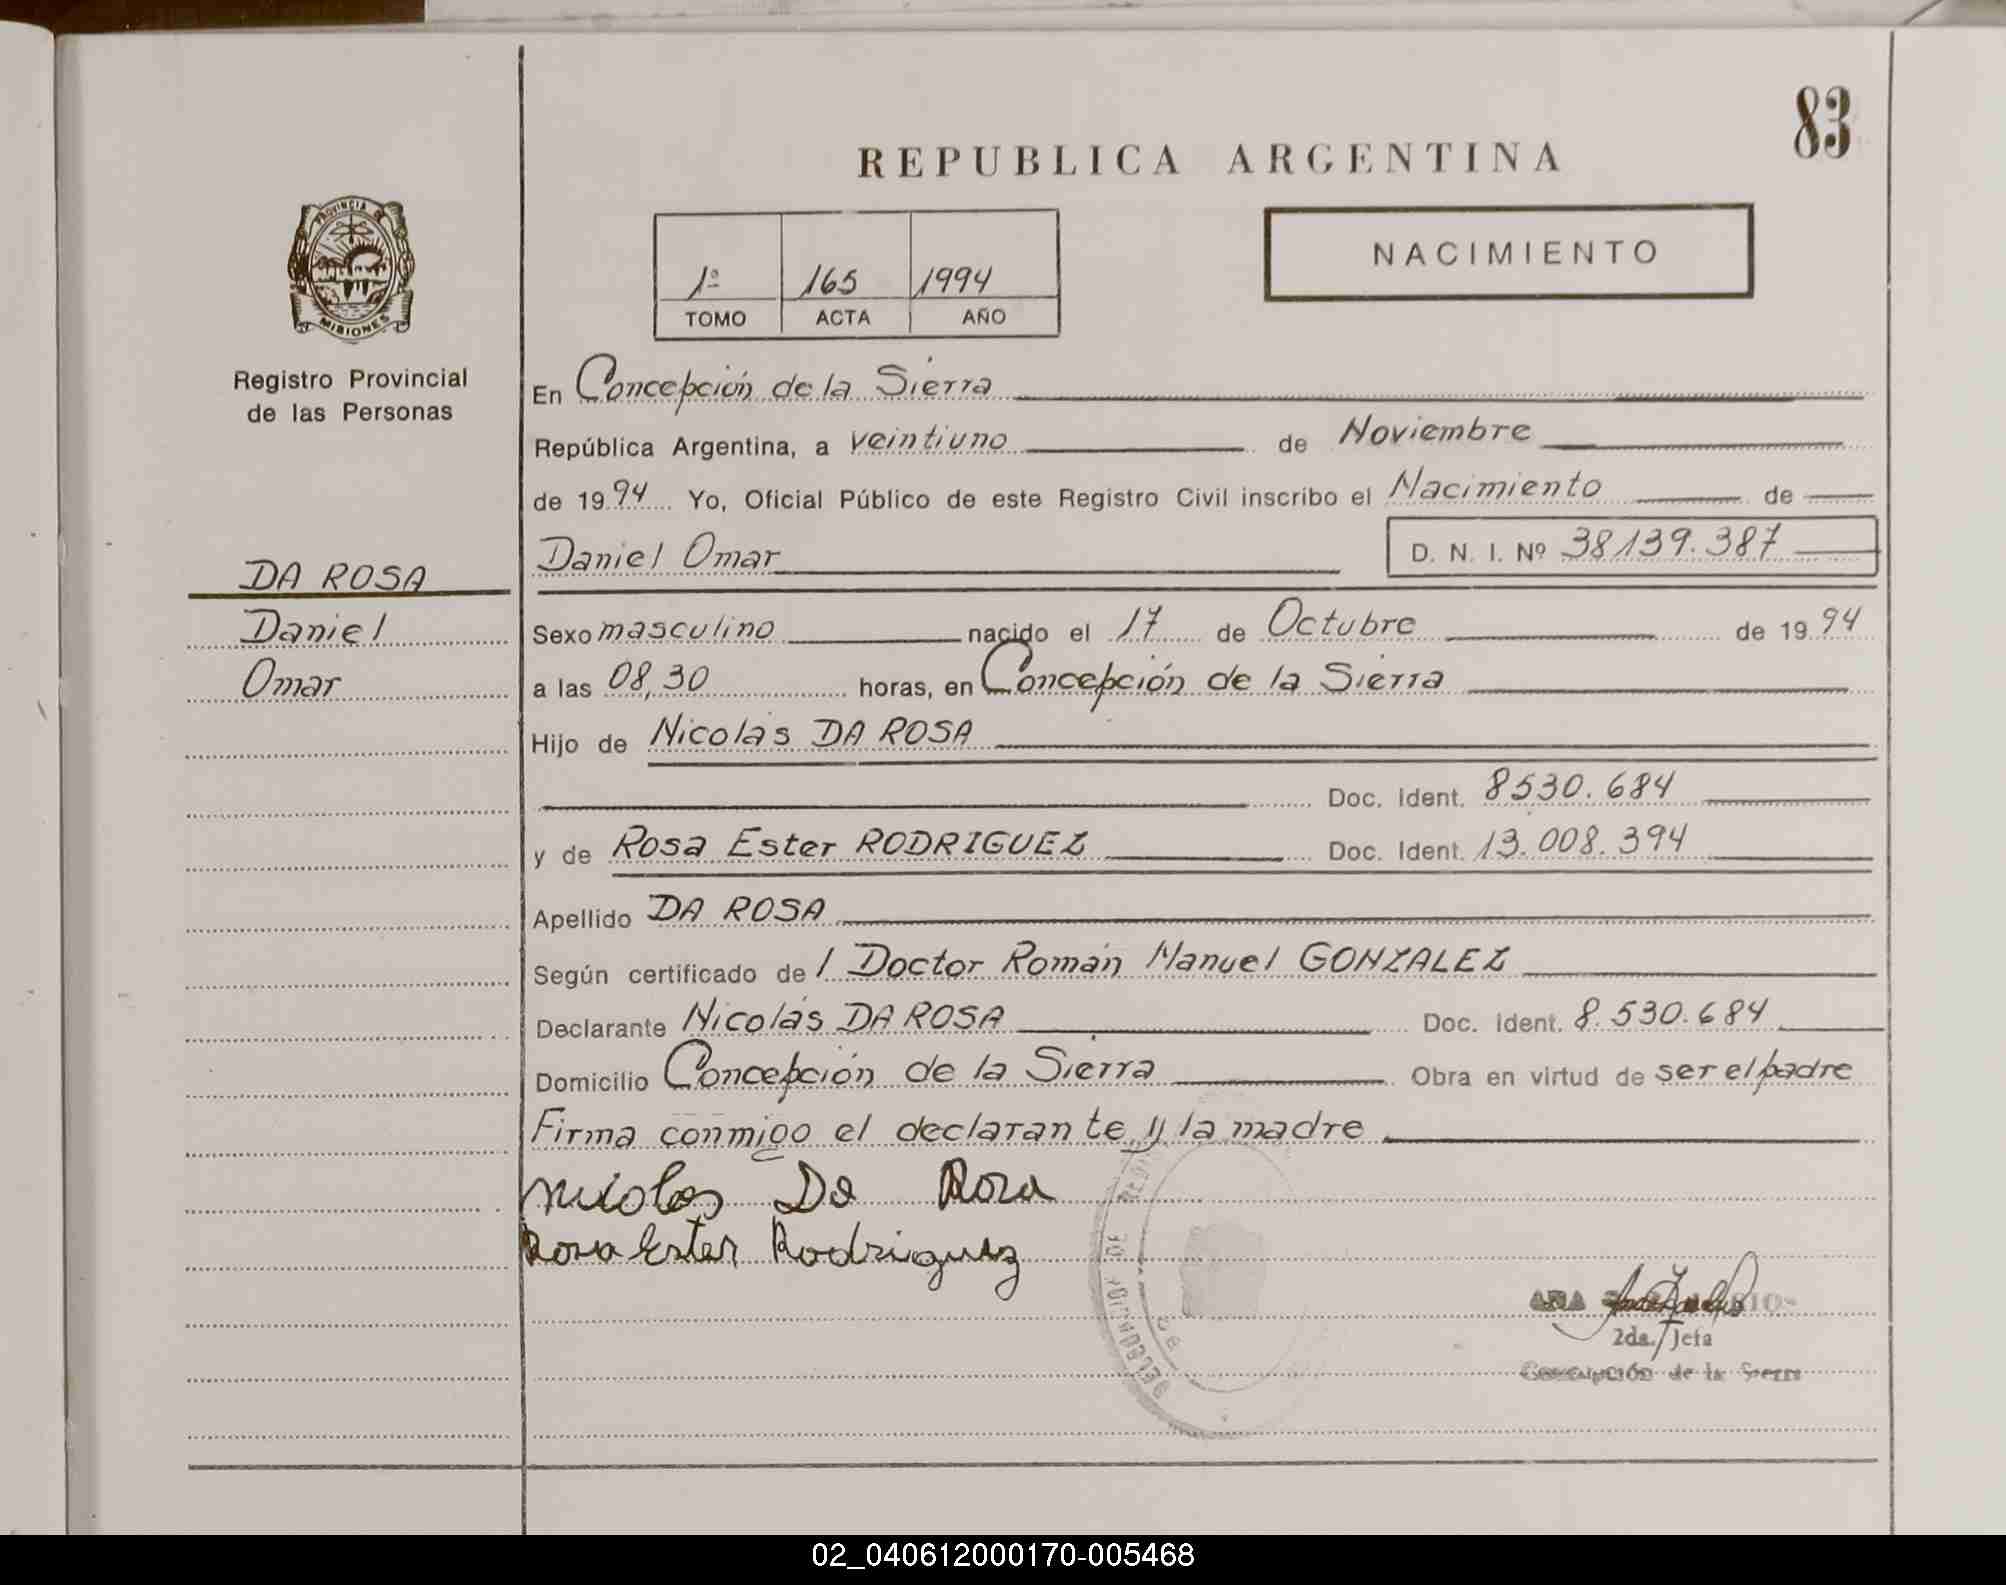 83
REPUBLICA ARGENTINA
PROVINCIA DE
MISIONES
Registro Provincial
de las Personas
1º 165 1994
TOMO ACTA AÑO
NACIMIENTO
En Concepción de la Sierra
República Argentina, a veintiuno de Noviembre
de 1994 Yo, Oficial Público de este Registro Civil inscribo el Nacimiento de
Daniel Omar D. N. I. Nº 38139.387
DA ROSA
Daniel
Omar
Sexo masculino nacido el 17 de Octubre de 1994
a las 08,30 horas, en Concepción de la Sierra
Hijo de Nicolás DA ROSA
Doc. Ident. 8530.684
y de Rosa Ester RODRIGUEZ Doc. Ident. 13.008.394
Apellido DA ROSA
Según certificado de / Doctor Román Manuel GONZALEZ
Declarante Nicolás DA ROSA Doc. Ident. 8.530.684
Domicilio Concepción de la Sierra Obra en virtud de ser el padre
Firma conmigo el declarante y la madre
Nicolas Da Rosa
Rosa Ester Rodriguez
ANA
2da. Jefa
Concepción de la Sierra
02_040612000170-005468